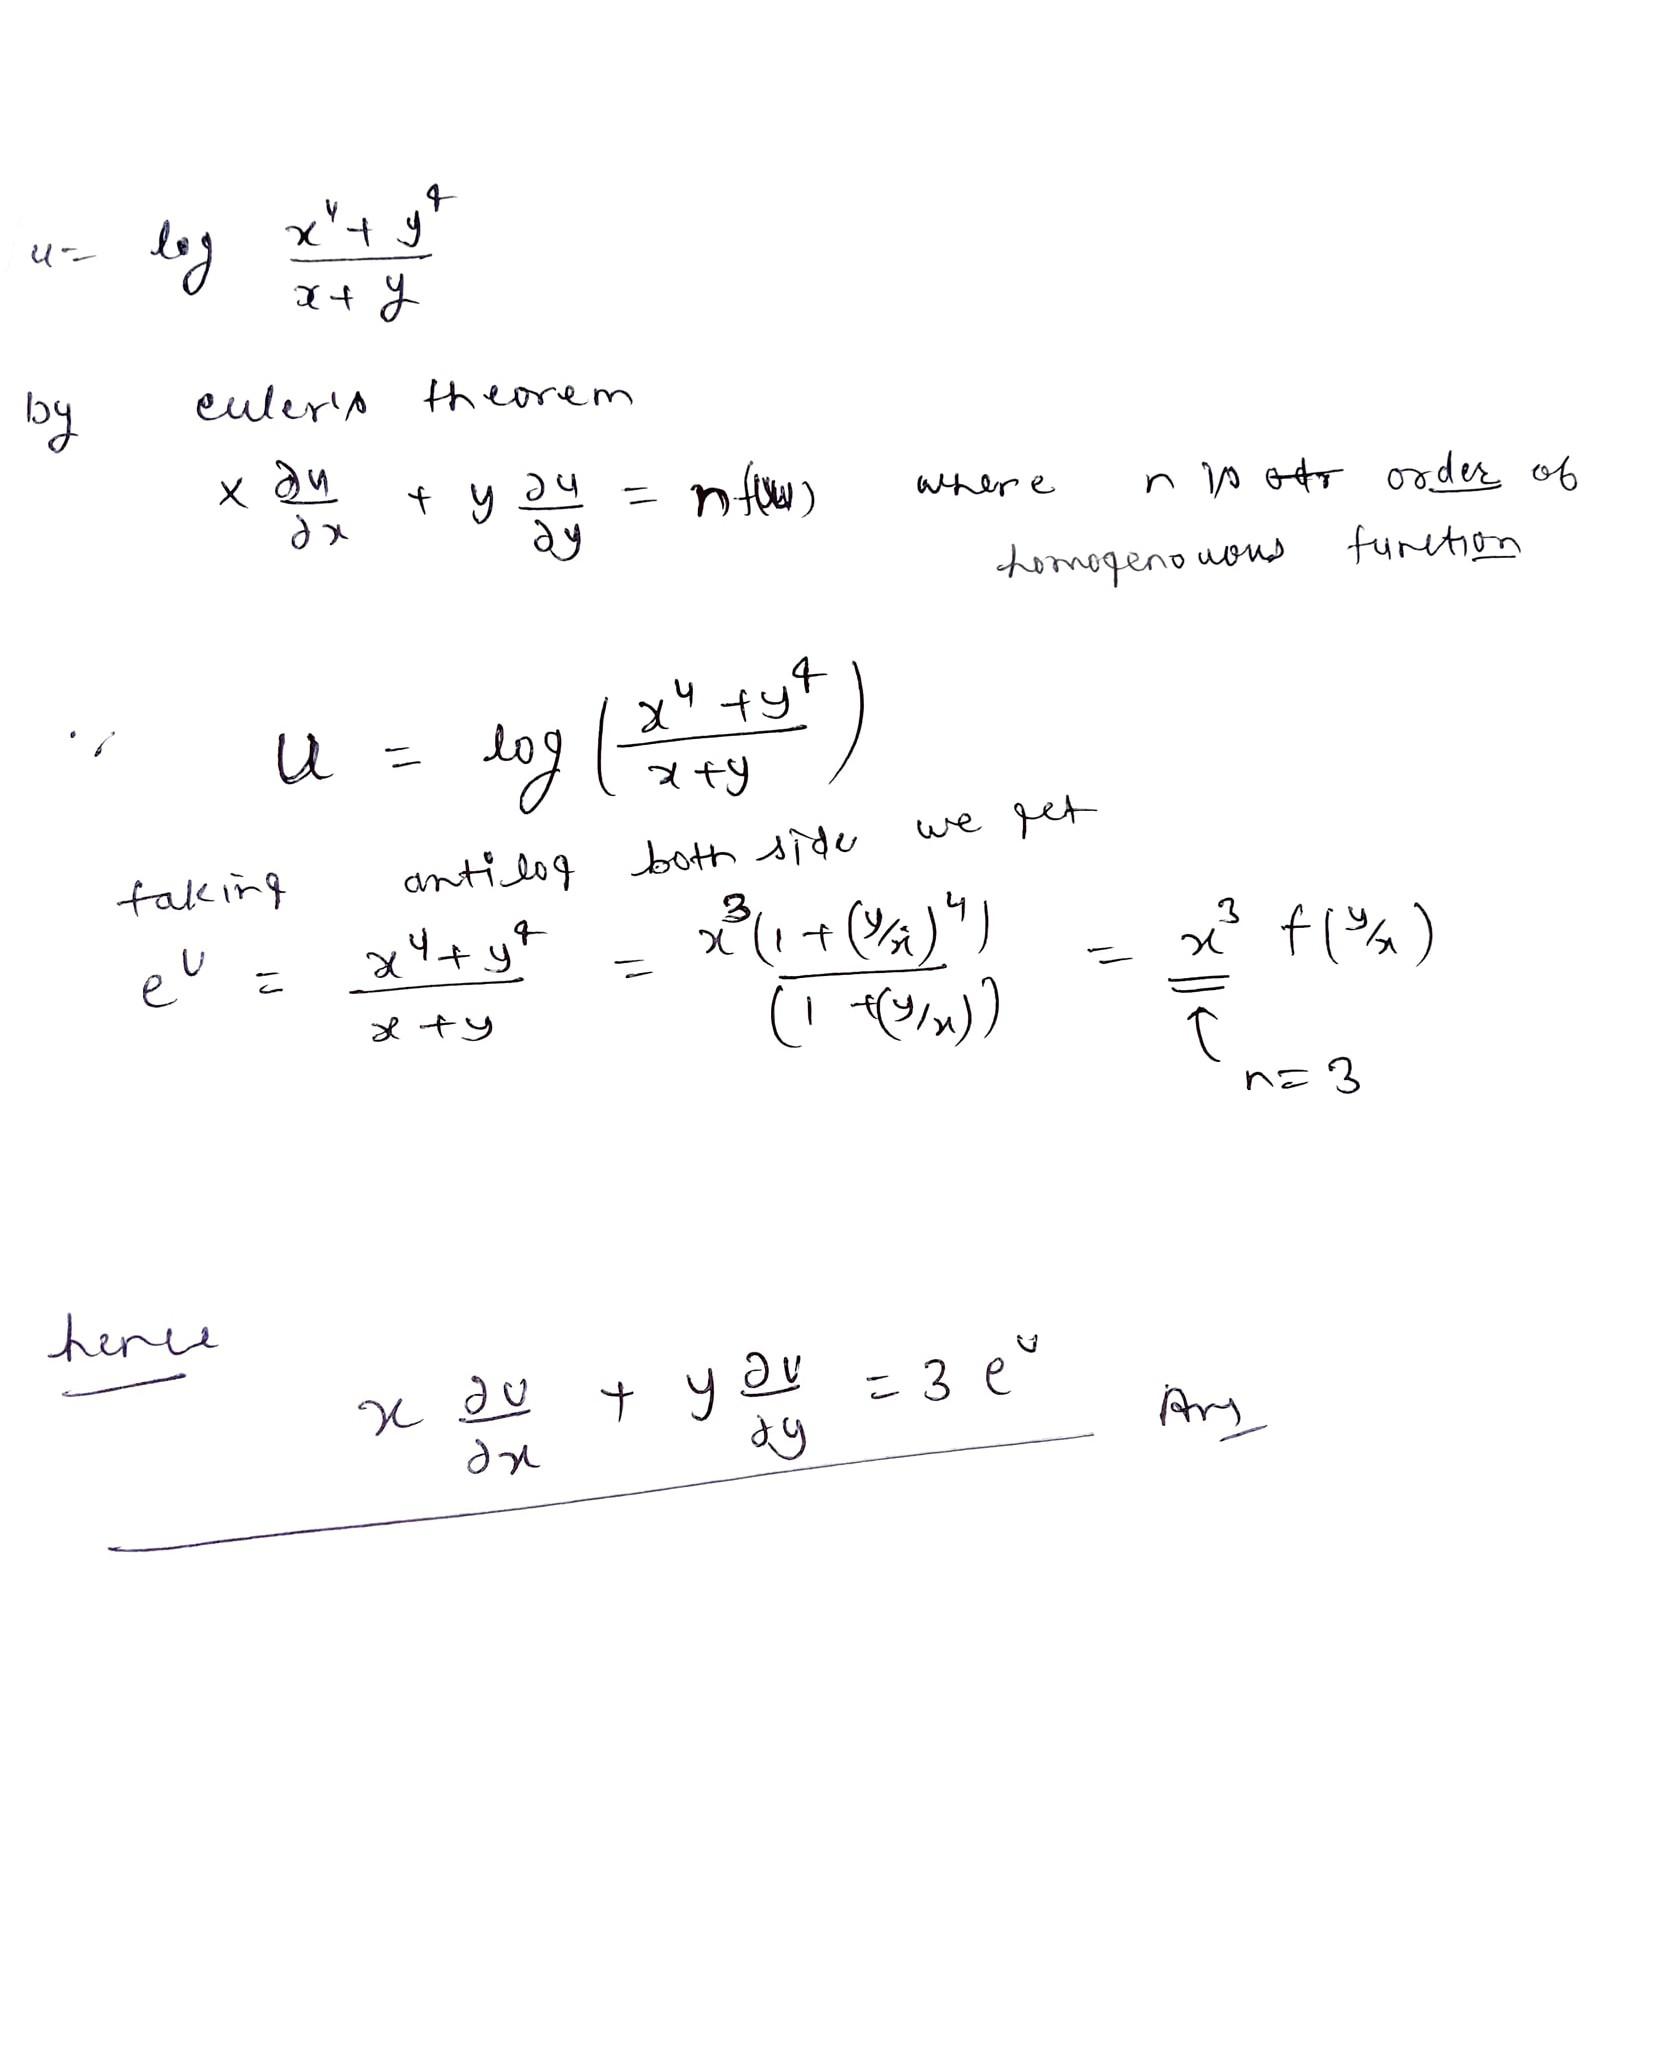 u = log (x⁴ + y⁴)/(x + y)
by euler's theorem
x ∂u/∂x + y ∂u/∂y = n f(u) where n is order of
homogenouous function
∵ u = log ((x⁴ + y⁴)/(x + y))
taking antilog both side we get
e^u = (x⁴ + y⁴)/(x + y) = x³(1 + (y/x)⁴)/(1 + (y/x)) = x³ f(y/x)
↑ n = 3
hence
x ∂u/∂x + y ∂u/∂y = 3 e^u Ans